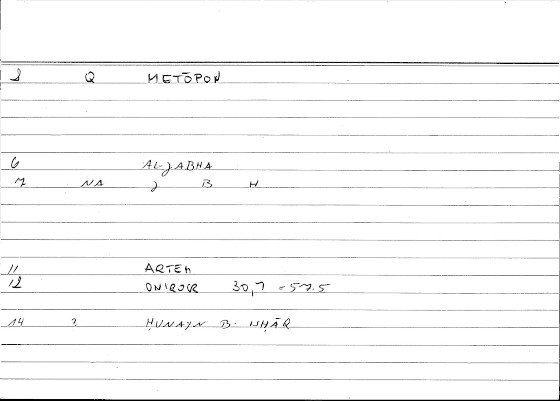 2 Q METŌPON
6 AL-JABHA
7 NA J B H
11 ARTEM
12 ONIROCR 30,7 = 57.5
14 2 ḤUNAYN B. ISḤĀQ